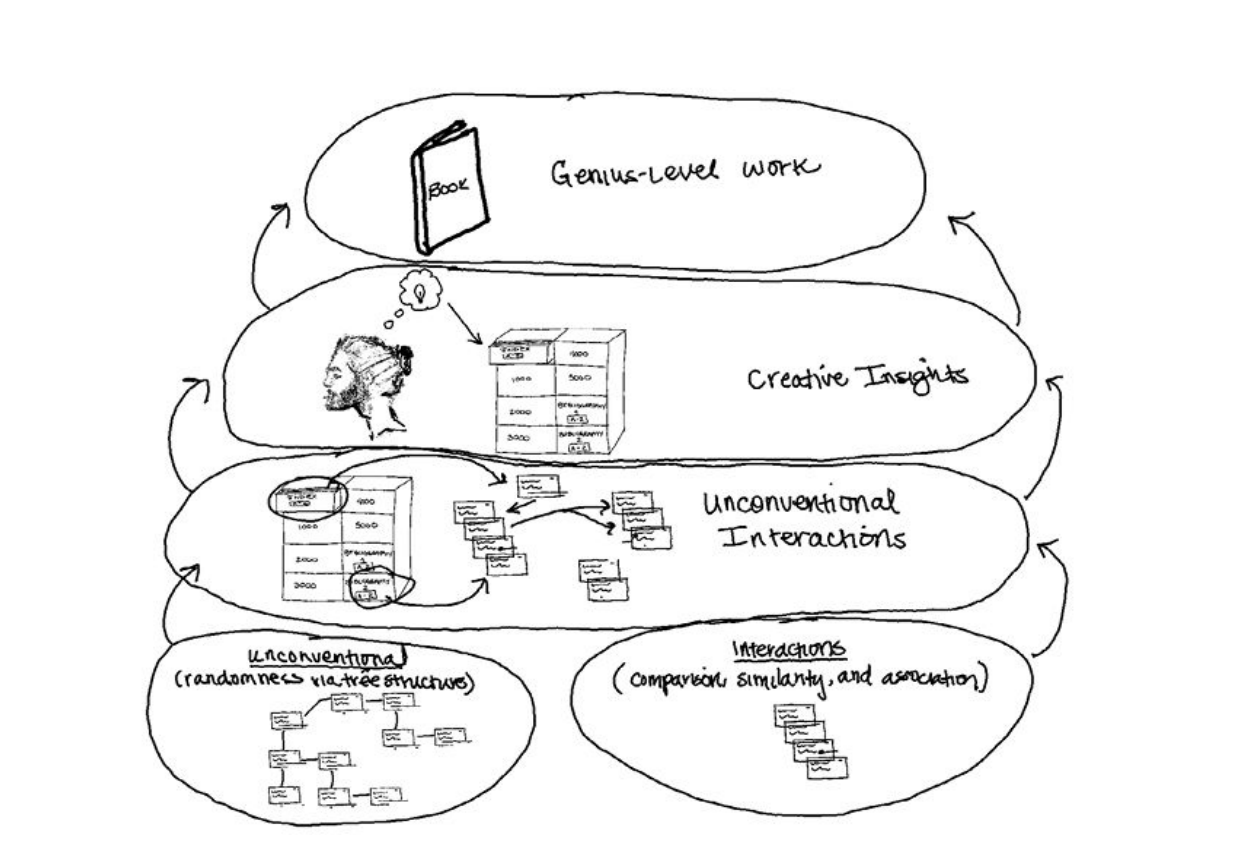 BOOK
Genius-Level Work
INDEX
4000
1000
5000
2000
BIBLIOGRAPHY
1
A-Z
3000
BIBLIOGRAPHY
2
A-Z
Creative Insights
INDEX
4000
1000
5000
2000
BIBLIOGRAPHY
1
A-Z
3000
BIBLIOGRAPHY
2
A-Z
Unconventional
Interactions
Unconventional
(randomness via tree structure)
Interactions
(comparison, similarity, and association)